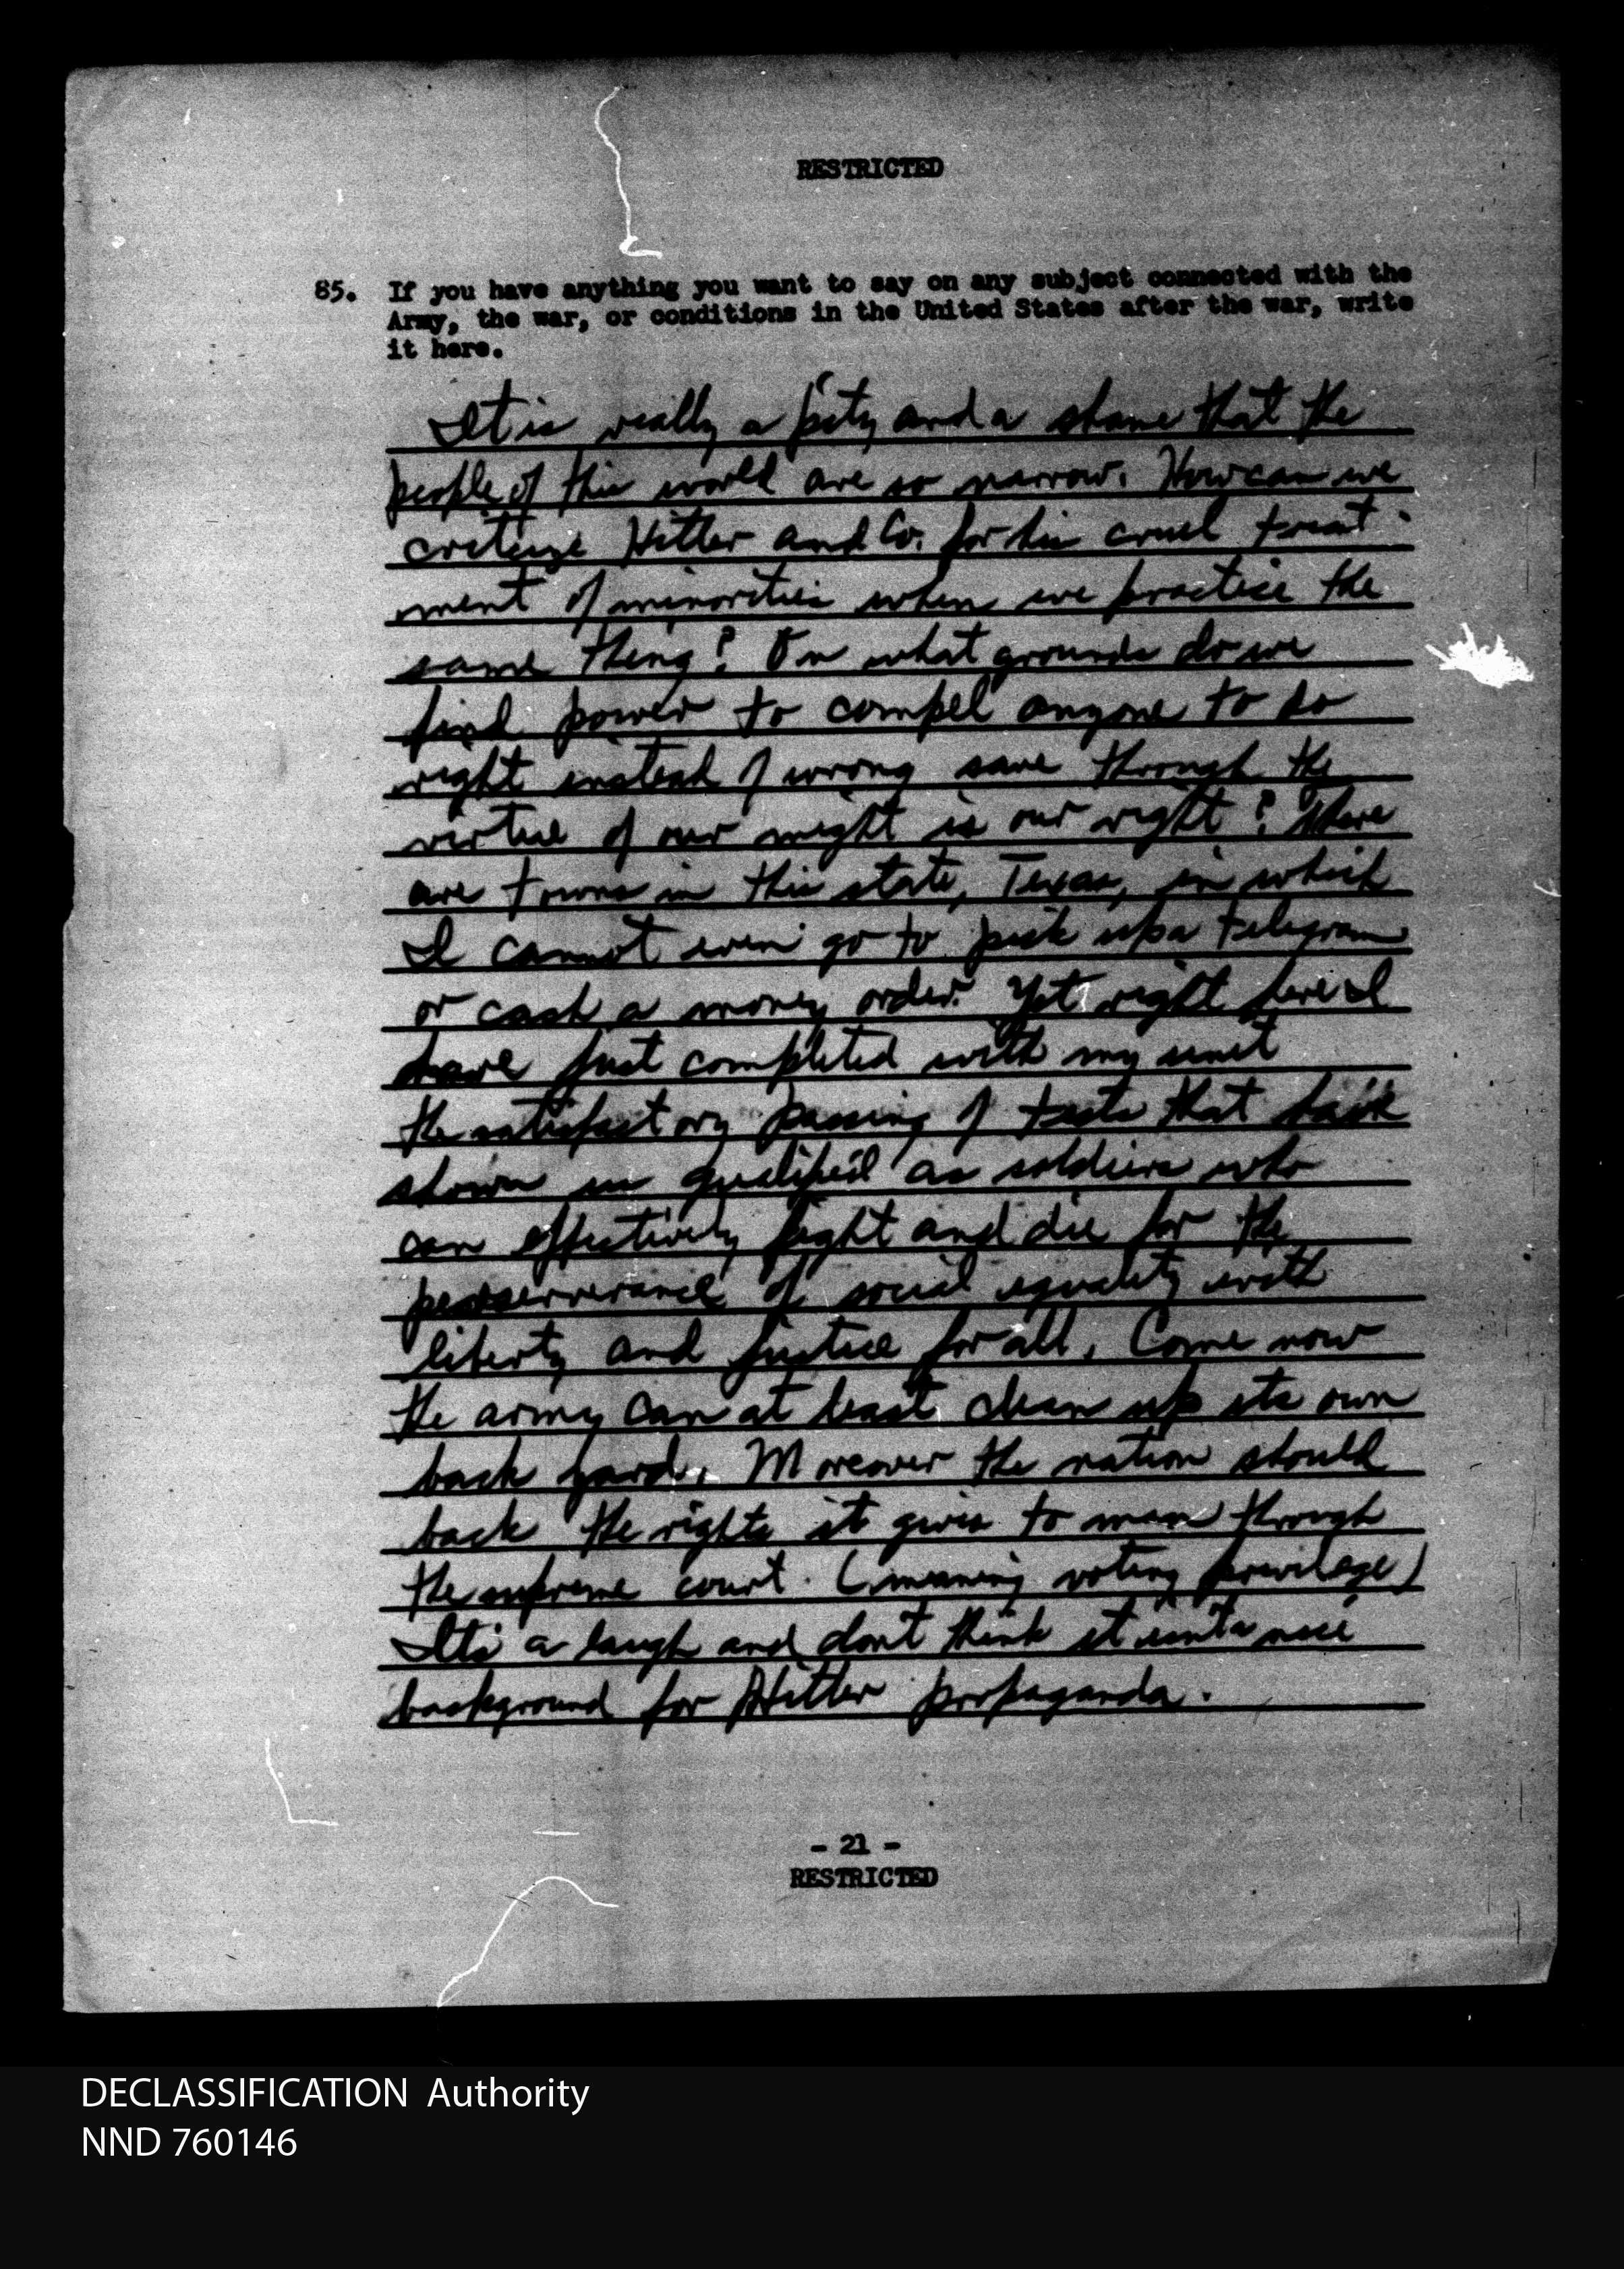 RESTRICTED
85. If you have anything you want to say on any subject connected with the
Army, the war, or conditions in the United States after the war, write
it here.
It is really a pity and a shame that the
people of this world are so narrow. How can we
criticize Hitler and Co. for his cruel treat-
ment of minorities when we practice the
same thing? On what grounds do we
find power to compel anyone to do
right instead of wrong save through the
virtue of our might is our right? There
are towns in this state, Texas, in which
I cannot even go to pick up a telegram
or cash a money order. Yet right here I
have just completed with my unit
the satisfactory passing of tests that have
shown us qualified as soldiers who
can effectively fight and die for the
perserverance of social equality with
liberty and justice for all. Come now
the army can at least clean up its own
back yard. Moreover the nation should
back the rights it gives to man through
the supreme court. (meaning voting privilege)
Its a laugh and don't think it isn't a nice
background for Hitler propaganda.
- 21 -
RESTRICTED
DECLASSIFICATION Authority
NND 760146